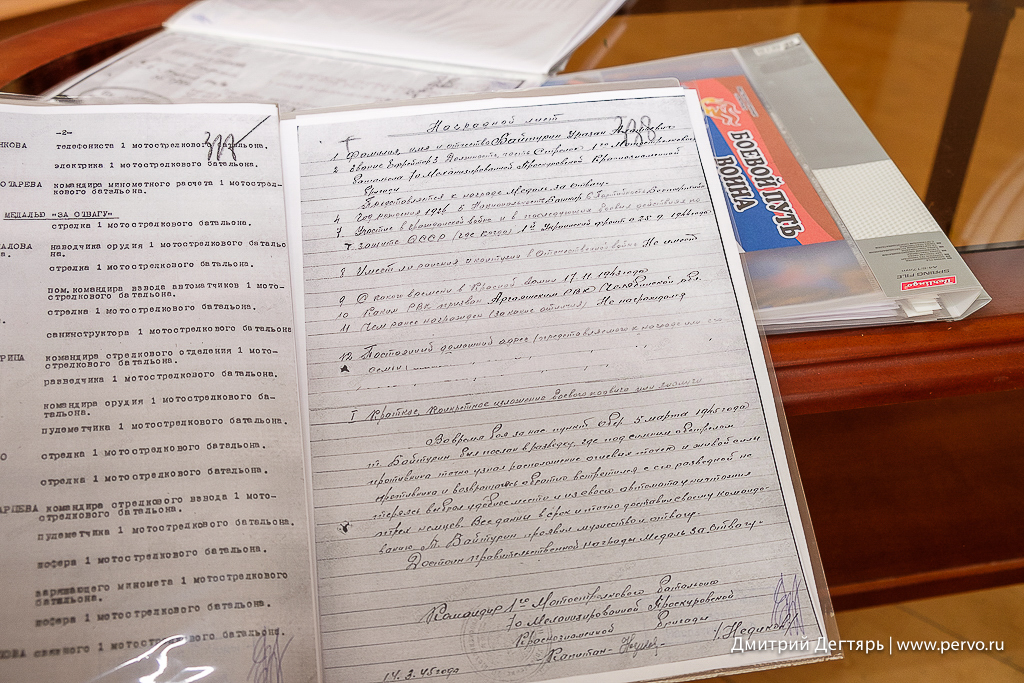 -2-
НКОВА телефониста 1 мотострелкового батальона.
электрика 1 мотострелкового батальона.
ОТАРЕВА командира минометного расчета 1 мотострел-
кового батальона.
МЕДАЛЬЮ "ЗА ОТВАГУ"
стрелка 1 мотострелкового батальона.
АЛОВА наводчика орудия 1 мотострелкового батальо
на.
стрелка 1 мотострелкового батальона.
пом. командира взвода автоматчиков 1 мото-
стрелкового батальона.
стрелка 1 мотострелкового батальона.
санинструктора 1 мотострелкового батальона
РИЦА командира стрелкового отделения 1 мото-
стрелкового батальона.
разведчика 1 мотострелкового батальона.
командира орудия 1 мотострелкового ба-
тальона.
пулеметчика 1 мотострелкового батальона.
стрелка 1 мотострелкового батальона.
стрелка 1 мотострелкового батальона.
АРЦЕВА командира стрелкового взвода 1 мото-
стрелкового батальона.
пулеметчика 1 мотострелкового батальона.
шофера 1 мотострелкового батальона.
заряжающего миномета 1 мотострелкового
батальона.
шофера 1 мотострелкового батальона.
связного 1 мотострелкового батальона.
Наградной лист
318
1 Фамилия, имя и отчество Байтурин Уразан
2 Звание Ефрейтор 3 Должность, часть Стрелок 1го Мотострелкового
Батальона 10 Механизированной Проскуровской Краснознаменной
Бригады
Представляется к награде Медаль за отвагу.
4 Год рождения 1926 5 Национальность Башкир 6 Партийность Беспартийный
7 Участие в гражданской войне и в последующих боевых действиях по
защите СССР (где, когда) 1й Украинский фронт с 25.9.1944года
8 Имеет ли ранения и контузии в Отечественной войне Не имеет
9 С какого времени в Красной Армии 17.11.1943года
10 Каким РВК призван Аргаяшским РВК Челябинской обл.
11 Чем ранее награжден (за какие отличия) Не награждался
12 Постоянный домашний адрес (представляемого к награде или его
семьи
I Краткое, конкретное изложение боевого подвига или заслуги
Во время боя за нас. пункт Обер. 5 марта 1945года
т. Байтурин был послан в разведку, где под сильным обстрелом
противника точно узнал расположение огневых точек и живой силы
противника и возвращаясь обратно встретился с его разведкой не
терялся выбрал удобное место и из своего автомата уничтожил
трех немцев. Все данные в срок и точно доставил своему командо-
ванию т. Байтурин проявил мужество и отвагу.
Достоин правительственной награды Медаль за Отвагу.
Командир 1го Мотострелкового Батальона
10 Механизированной Проскуровской
Краснознаменной Бригады
-Капитан-
14.3.45года
БОЕВОЙ ПУТЬ
ВОИНА
SPRING FILE
Berlingo
Дмитрий Дегтярь | www.pervo.ru